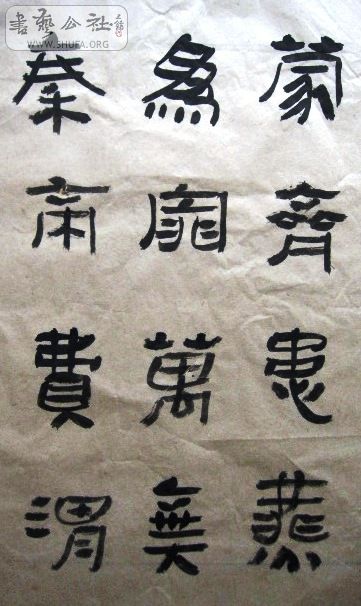 書藝公社
WWW.SHUFA.ORG
蒙齊患燕
為萬無
秦費渭